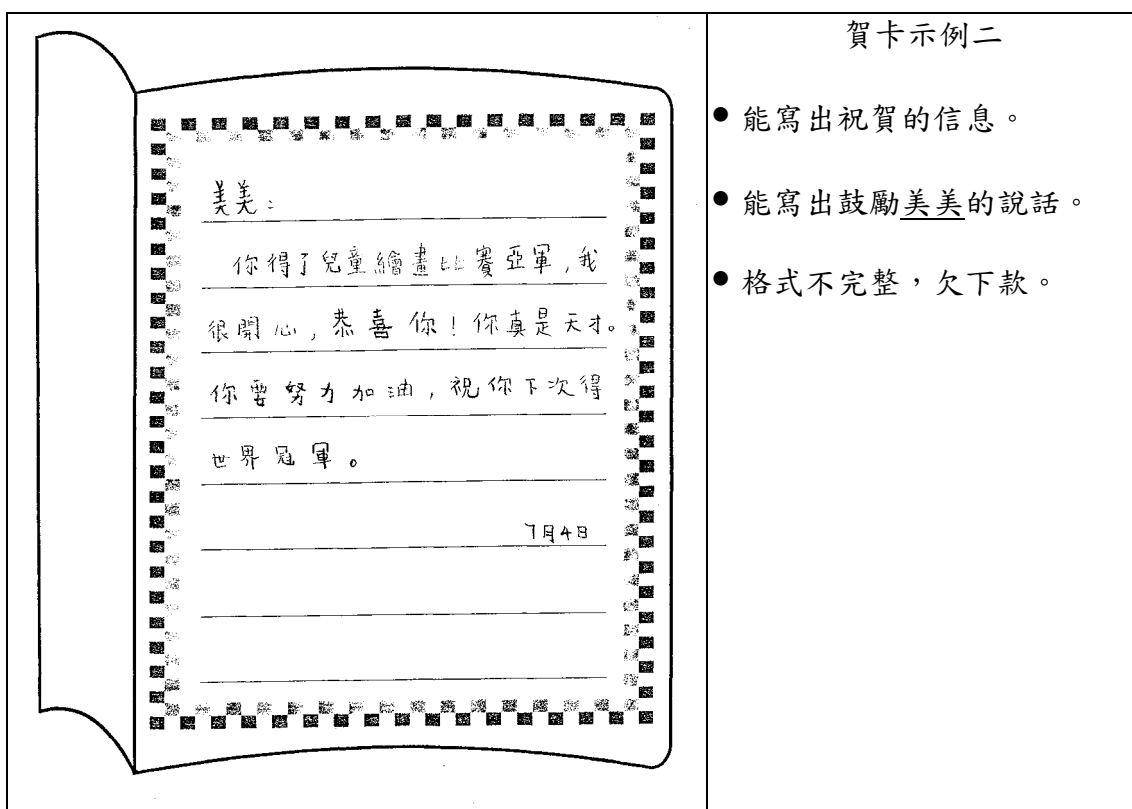 美美：
你得了兒童繪畫比賽亞軍，我
很開心，恭喜你！你真是天才。
你要努力加油，祝你下次得
世界冠軍。
7月4日
賀卡示例二
● 能寫出祝賀的信息。
● 能寫出鼓勵美美的說話。
● 格式不完整，欠下款。